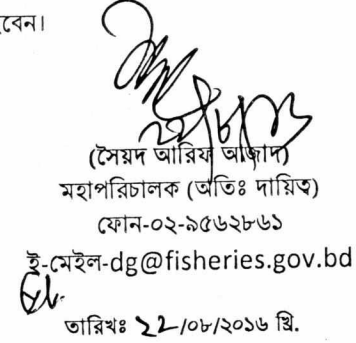 বেন।
(সৈয়দ আরিফ আজাদ)
মহাপরিচালক (অতিঃ দায়িত্ব)
ফোন-০২-৯৫৬২৮৬১
ই-মেইল-dg@fisheries.gov.bd
তারিখঃ ২২/০৮/২০১৬ খ্রি.